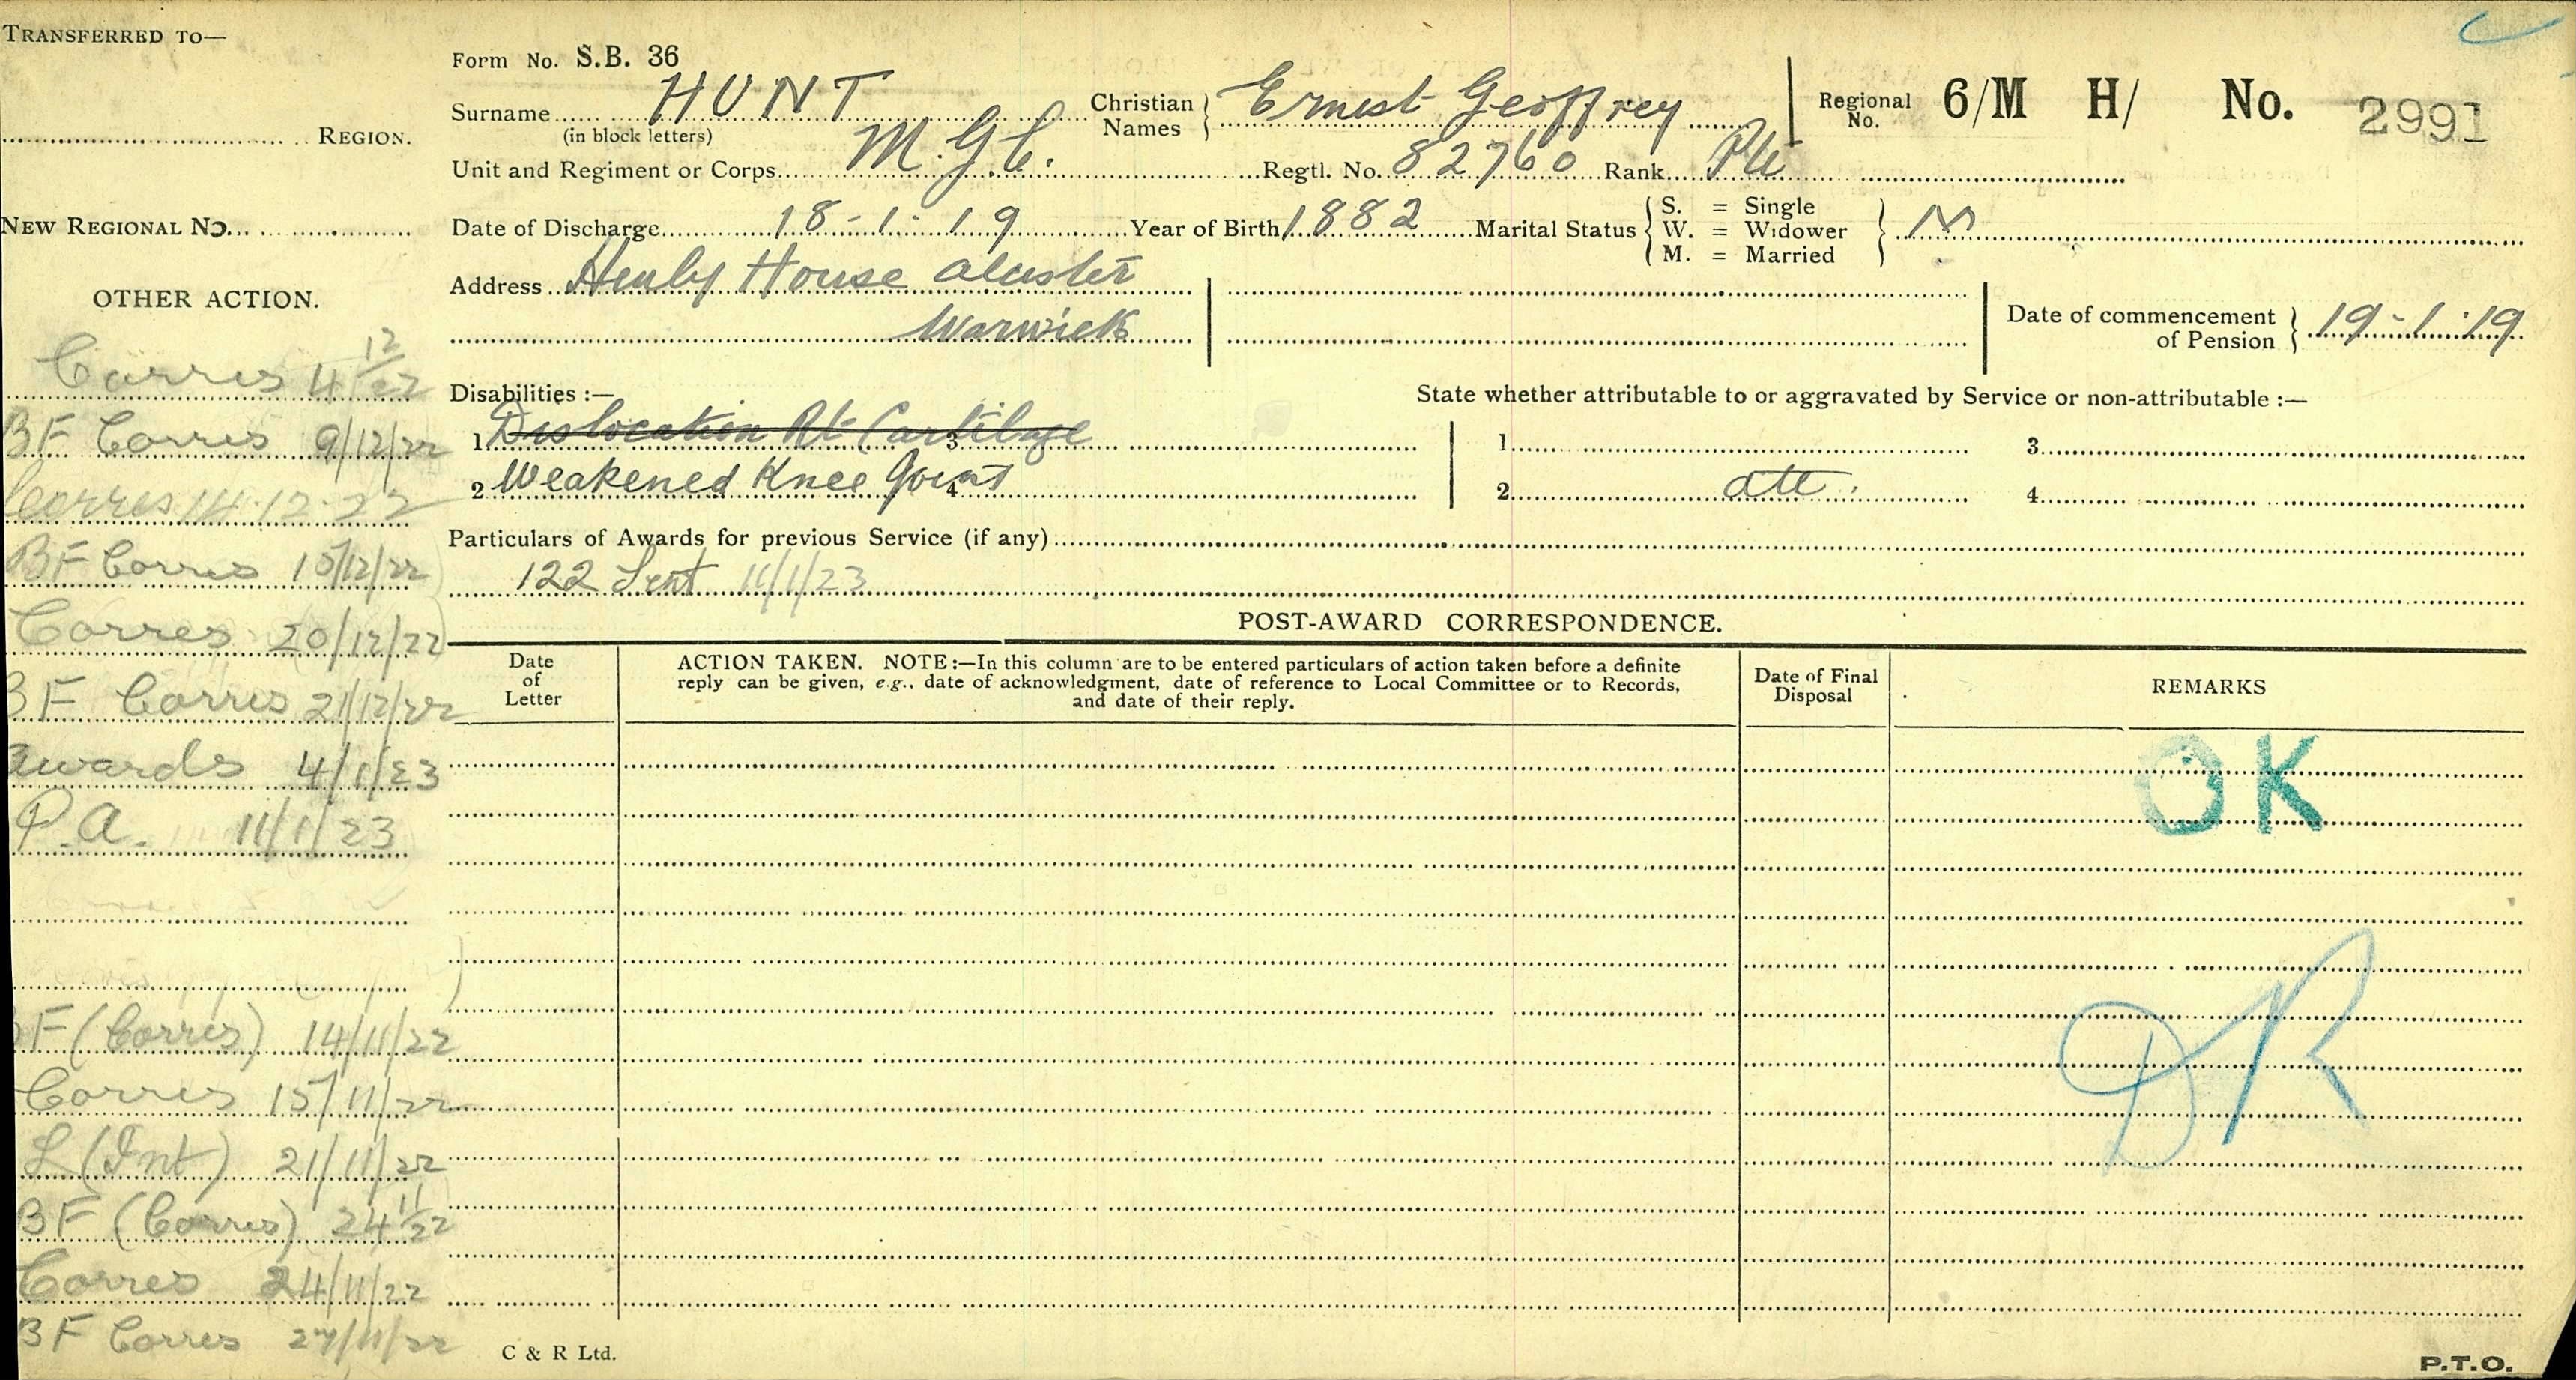 TRANSFERRED TO—
REGION.
NEW REGIONAL NO.
OTHER ACTION.
Corres 4 12/22
BF Corres 9/12/22
Corres 14.12.22
BF Corres 15/12/22
Corres 20/12/22
BF Corres 21/12/22
Awards 4/1/23
P.A. 11/1/23
BF (Corres) 14/11/22
Corres 15/11/22
L (Int) 21/11/22
BF (Corres) 24 11/22
Corres 24/11/22
BF Corres 27/11/22
Form No. S.B. 36
Surname HUNT
(in block letters)
Christian Names } Ernest Geoffrey
Regional No. 6/M H/ No. 2991
Unit and Regiment or Corps M.G.C. Regtl. No. 82760 Rank Pte
Date of Discharge 18-1-19 Year of Birth 1882 Marital Status { S. = Single
W. = Widower
M. = Married } M
Address House
Warwick
Date of commencement of Pension } 19-1-19
Disabilities :—
State whether attributable to or aggravated by Service or non-attributable :—
1. Dislocation Rt Cartilage 3. 1. 3.
2 Weakened Knee Joint 4 2. att. 4.
Particulars of Awards for previous Service (if any)
122 Sent 11/1/23
POST-AWARD CORRESPONDENCE.
Date of Letter
ACTION TAKEN. NOTE:—In this column are to be entered particulars of action taken before a definite
reply can be given, e.g., date of acknowledgment, date of reference to Local Committee or to Records,
and date of their reply.
Date of Final Disposal
REMARKS
OK
DR
C & R Ltd.
P.T.O.